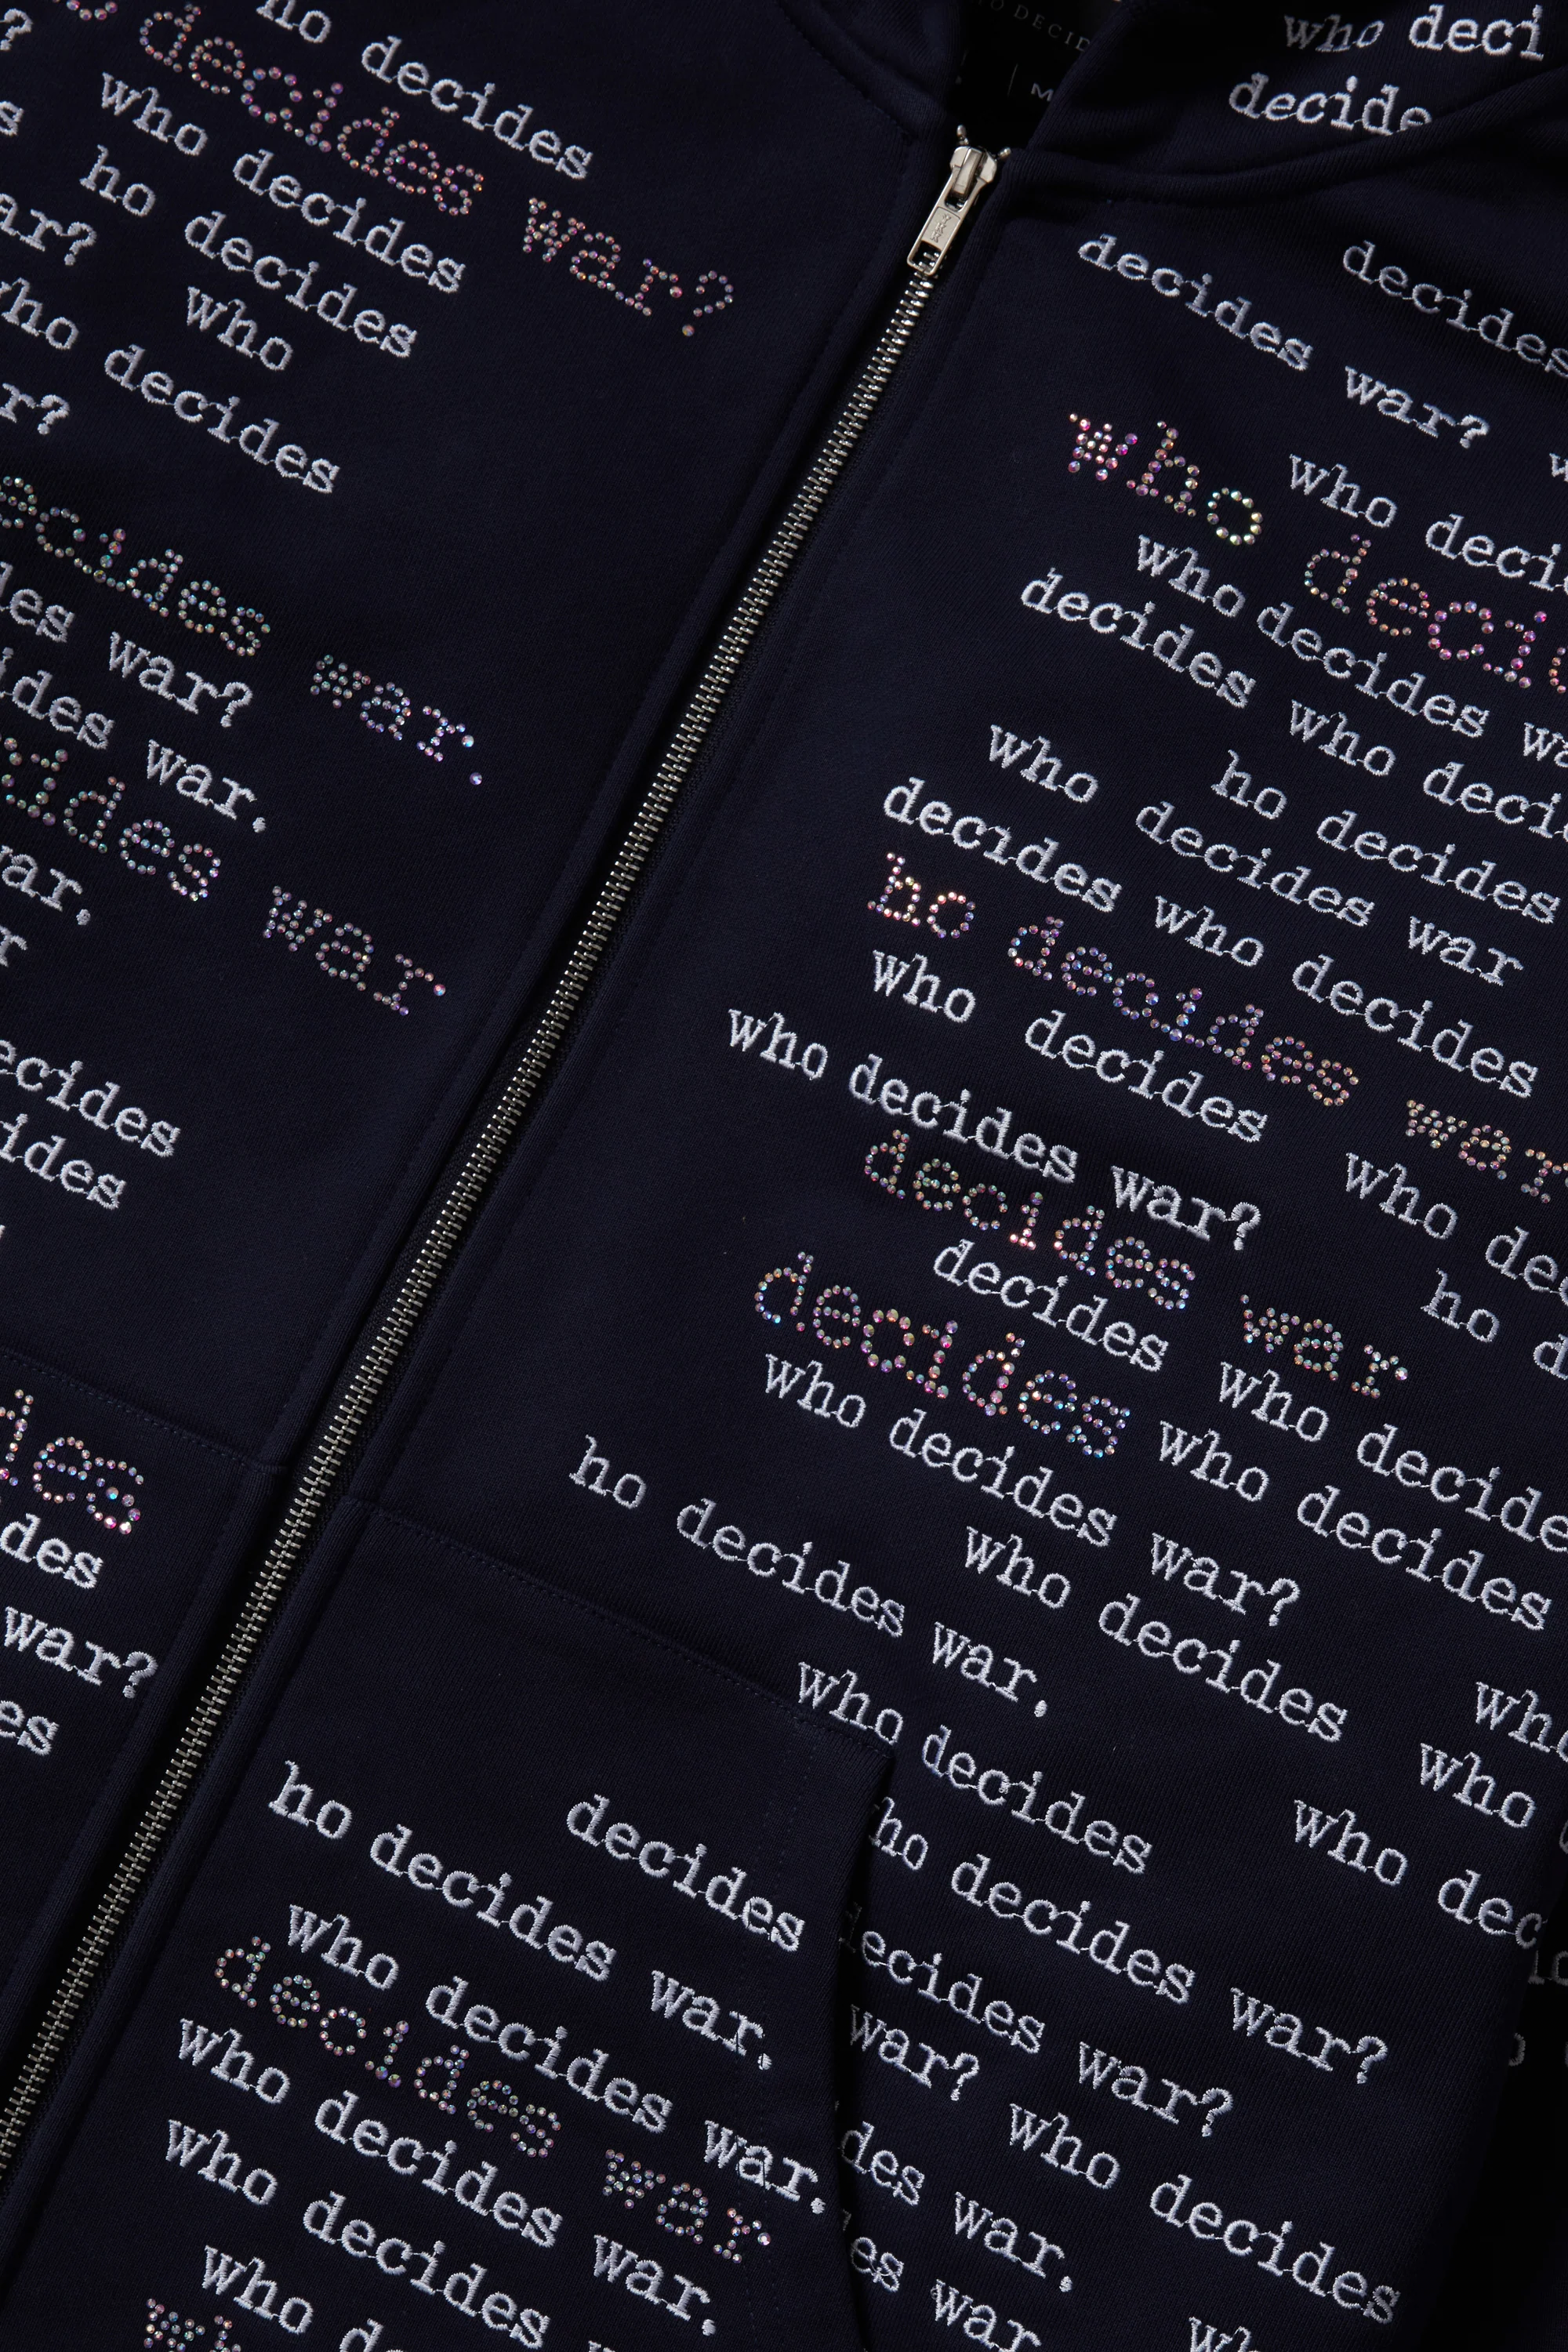 ho decides
decides war?
who decides
ho decides
who
who decides
decides war.
war?
war.
decides war.
war.
decides
war?
DECID
M
who deci
decide
decides
decides war?
who deci
who decid
who decides
decides who deci
ho decides
who decides war
decides who decides
ho decides war
who decides
who decides war?
who des
decides war
ho d
decides who decide
decides who decides
who decides war?
who decides
ho decides war.
who
who decides
who dec
ho decides war?
decides
ho decides war.
decides war?
who decides war.
war? who decides
decides war
who decides war.
des war.
who decides war.
es war
who de